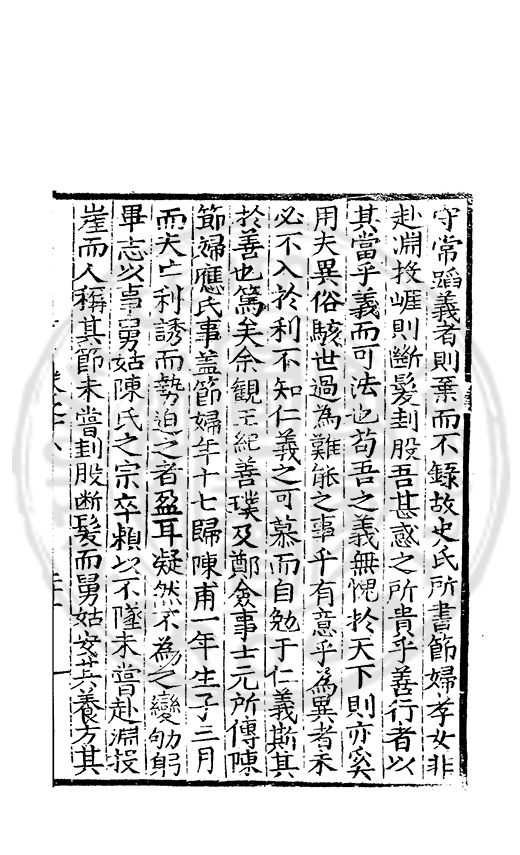 守常蹈義者則棄而不錄故史氏所書節婦孝女非
赴淵投崕則斷髮刲股吾甚惑之所貴乎善行者以
其當乎義而可法也苟吾之義無愧於天下則亦奚
用夫異俗駭世過為難能之事乎有意乎為異者未
必不入於利不知仁義之可慕而自勉于仁義斯其
於善也篤矣余觀王紀善璞及鄭僉事士元所傳陳
節婦應氏事蓋節婦年十七歸陳甫一年生子三月
而夫亡利誘而勢迫之者盈耳凝然不為之變劬躬
畢志以事舅姑陳氏之宗卒賴以不墜未嘗赴淵投
崖而人稱其節未嘗刲股斷髮而舅姑安其養方其